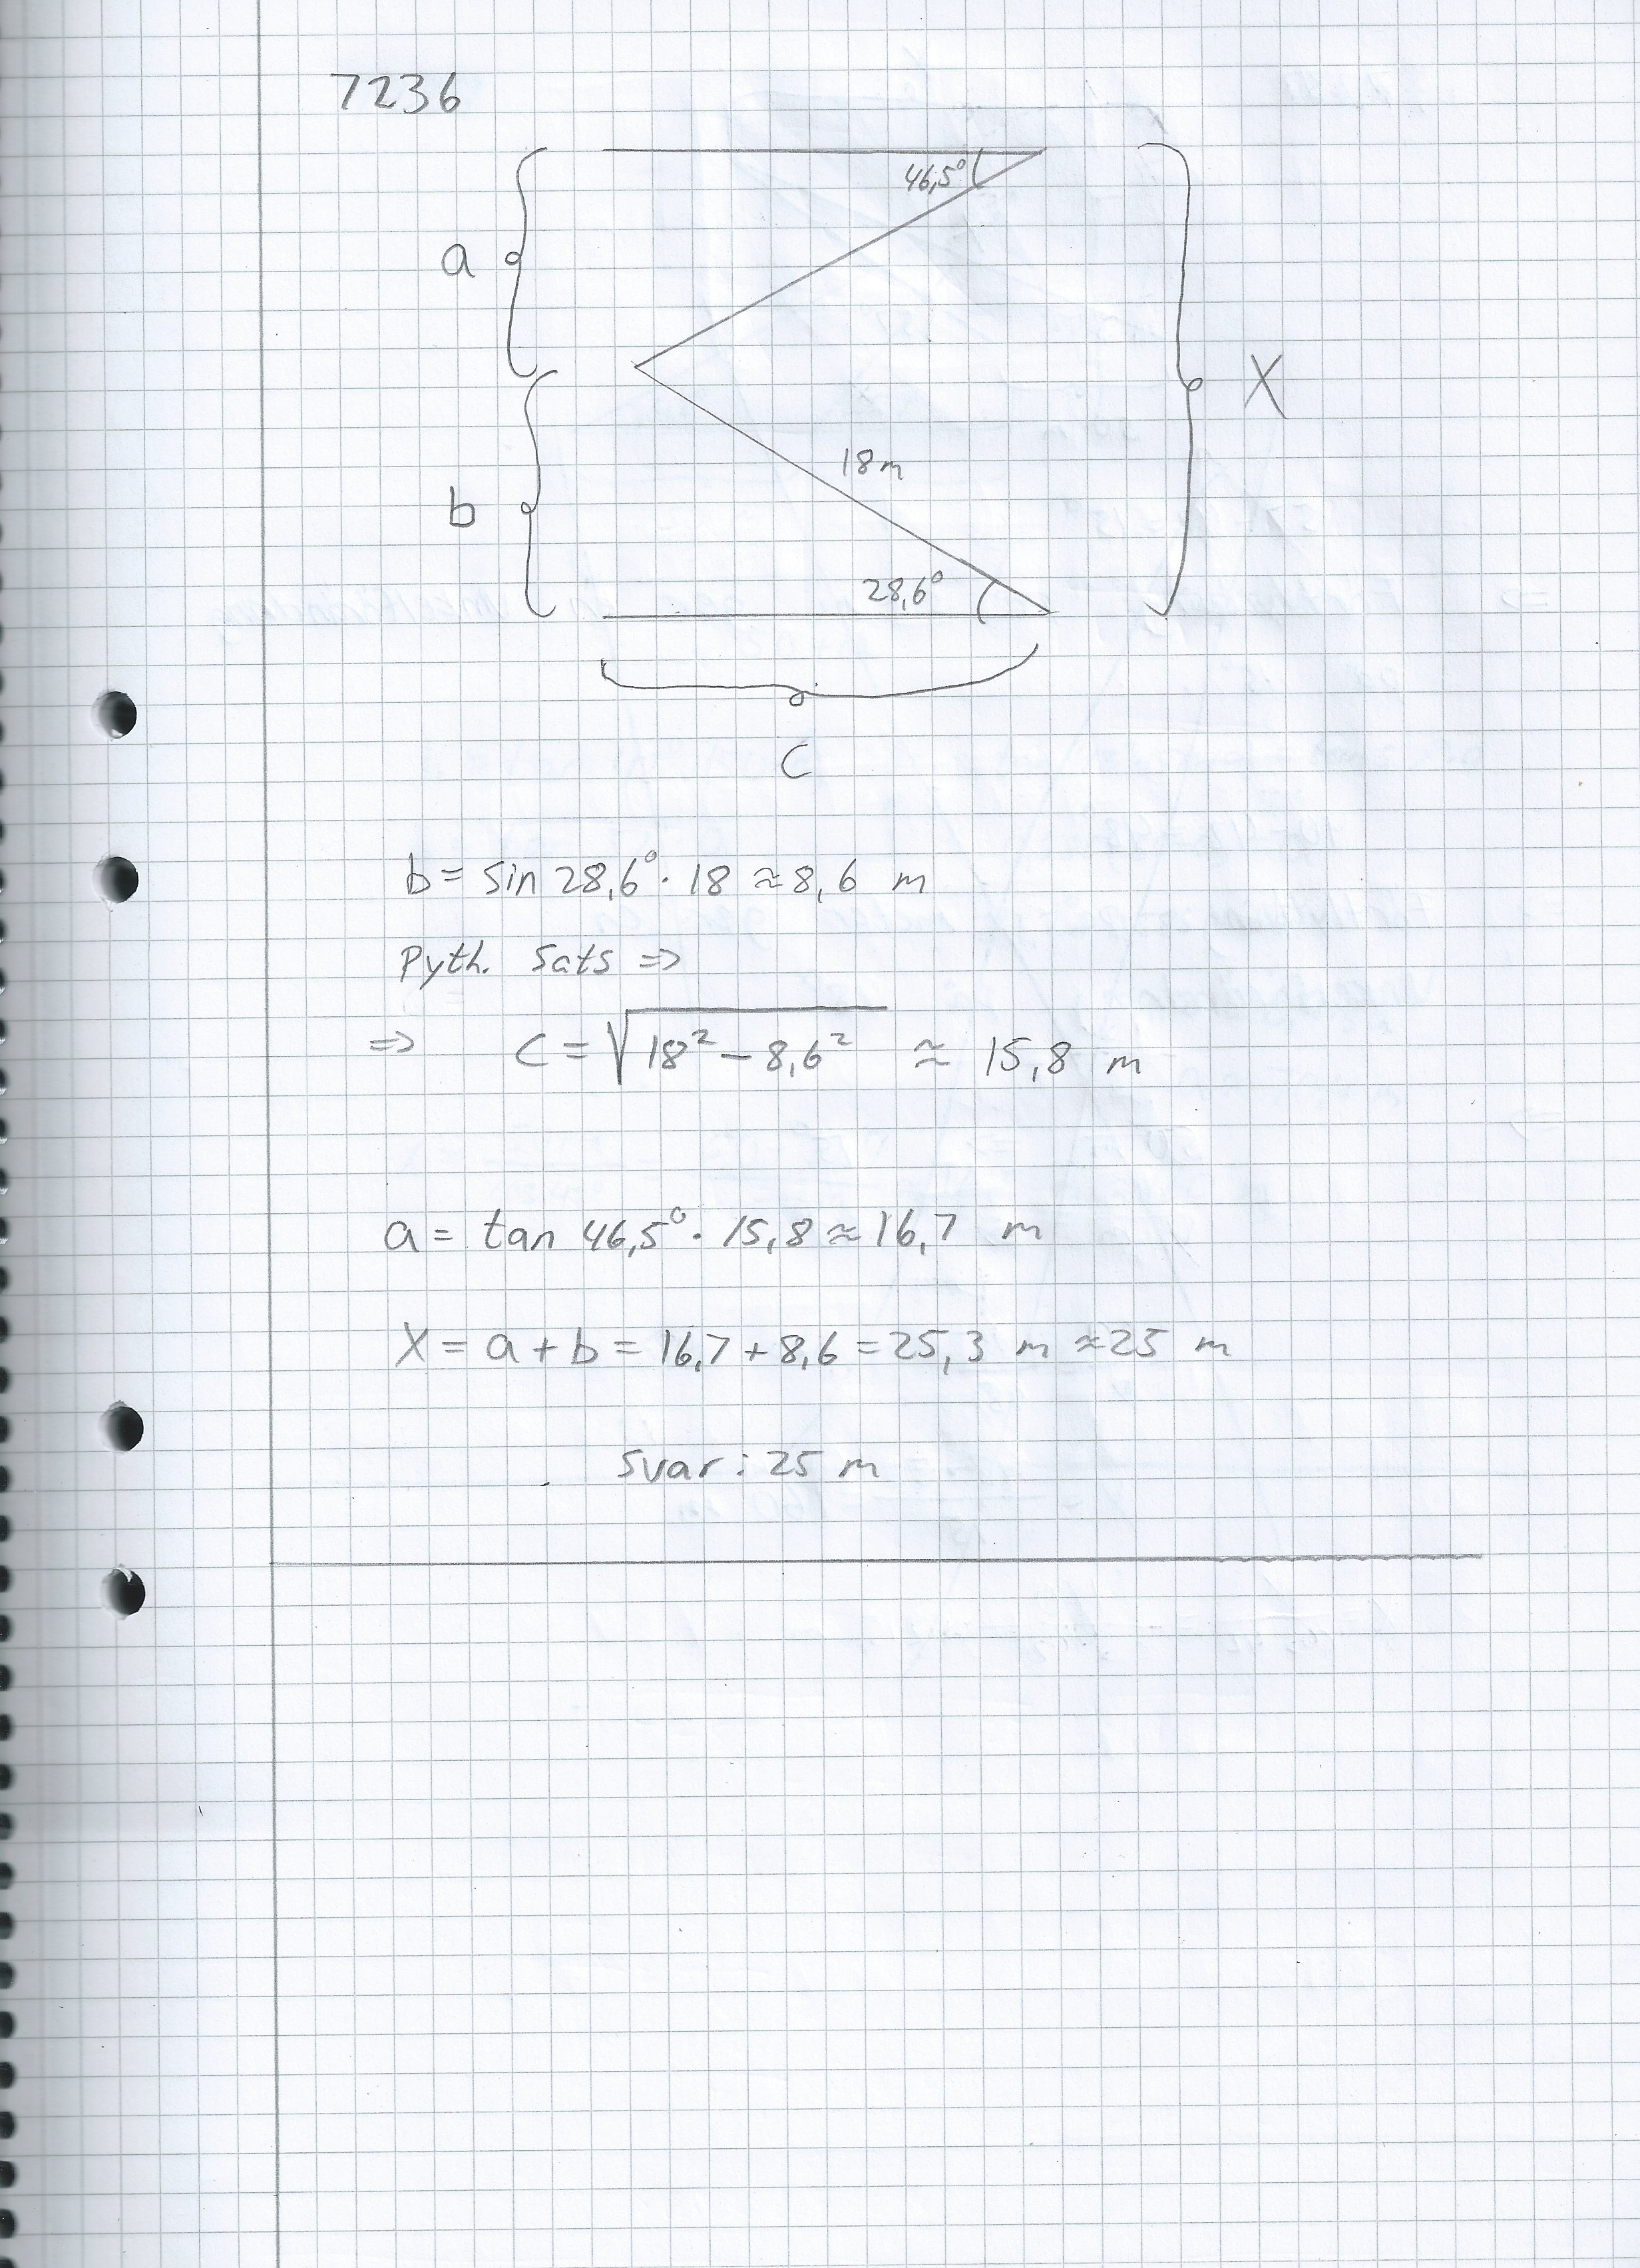 7236
46,5°
a
X
18m
b
28,6°
C
b = sin 28,6° · 18 ≈ 8,6 m
Pyth. Sats =>
=> C = √18² - 8,6² ≈ 15,8 m
a = tan 46,5° · 15,8 ≈ 16,7 m
X = a + b = 16,7 + 8,6 = 25,3 m ≈ 25 m
Svar : 25 m